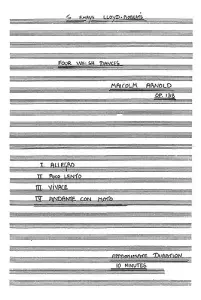 LLOYD-ROBERTS
FOUR WELSH DANCES
MALCOLM ARNOLD
OP. 138
I ALLEGRO
II POCO LENTO
III VIVACE
IV ANDANTE CON MOTO
APPROXIMATE DURATION
10 MINUTES